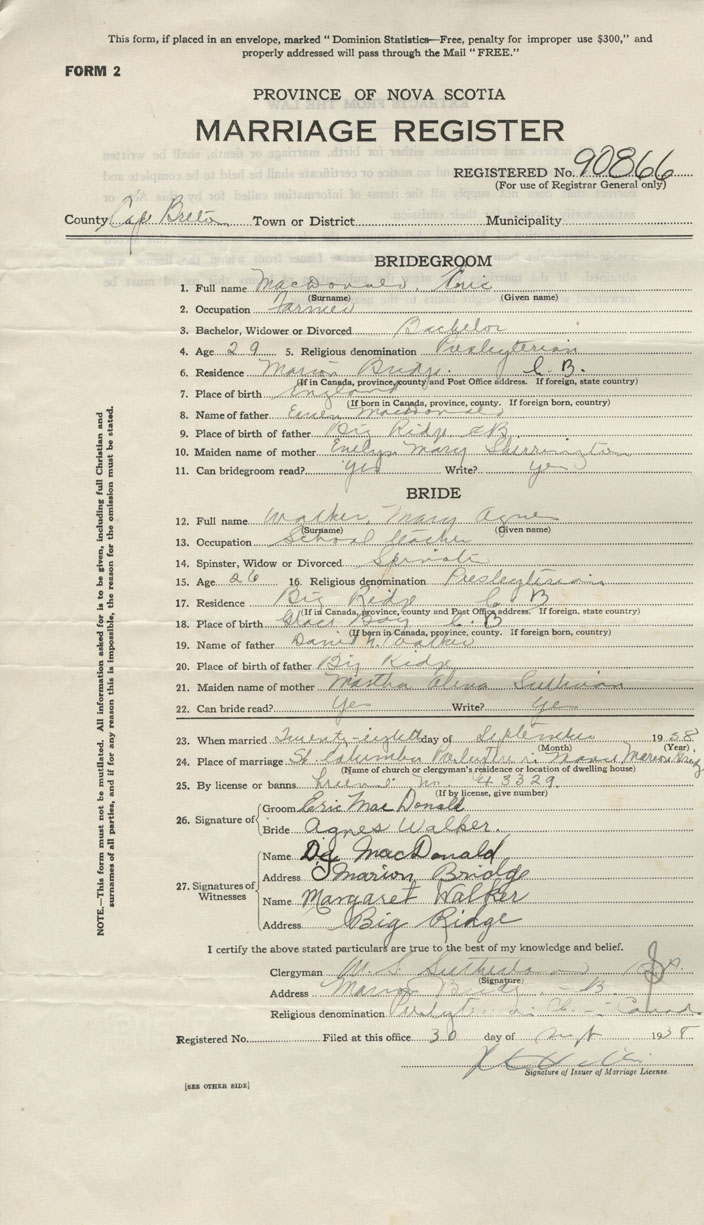 This form, if placed in an envelope, marked "Dominion Statistics—Free, penalty for improper use $300," and
properly addressed will pass through the Mail "FREE."
FORM 2
PROVINCE OF NOVA SCOTIA
MARRIAGE REGISTER
REGISTERED No. 90866
(For use of Registrar General only)
County Cape Breton Town or District Municipality
BRIDEGROOM
1. Full name MacDonald, Eric
(Surname) (Given name)
2. Occupation Farmer
3. Bachelor, Widower or Divorced Bachelor
4. Age 29 5. Religious denomination Presbyterian
6. Residence Marion Bridge C. B.
(If in Canada, province, county and Post Office address. If foreign, state country)
7. Place of birth England
(If born in Canada, province, county. If foreign born, country)
8. Name of father MacDonald
9. Place of birth of father Big Ridge C.B.
10. Maiden name of mother Evelyn Mary Sherrington
11. Can bridegroom read? Yes Write? Yes
BRIDE
12. Full name Walker, Mary Agnes
(Surname) (Given name)
13. Occupation School teacher
14. Spinster, Widow or Divorced
15. Age 26 16. Religious denomination Presbyterian
17. Residence Big Ridge C. B
(If in Canada, province, county and Post Office address. If foreign, state country)
18. Place of birth Glace Bay C. B
(If born in Canada, province, county. If foreign born, country)
19. Name of father Daniel N. Walker
20. Place of birth of father Big Ridge
21. Maiden name of mother Martha Sullivan
22. Can bride read? Yes Write? Yes
23. When married Twenty-eighth day of September 1938
(Month) (Year)
24. Place of marriage St. Columba Manse Marion Bridge
(Name of church or clergyman's residence or location of dwelling house)
25. By license or banns License No. 43329
(If by license, give number)
26. Signature of Groom Eric MacDonald
Bride Agnes Walker.
27. Signatures of Witnesses
Name MacDonald
Address Marion Bridge
Name Margaret Walker
Address Big Ridge
I certify the above stated particulars are true to the best of my knowledge and belief.
Clergyman
(Signature)
Address Marion Bridge C. B.
Religious denomination Presbyterian Canada
Registered No. Filed at this office 30 day of Sept 1938
Signature of Issuer of Marriage License.
[SEE OTHER SIDE]
NOTE.—This form must not be mutilated. All information asked for is to be given, including full Christian and
surnames of all parties, and if for any reason this is impossible, the reason for the omission must be stated.